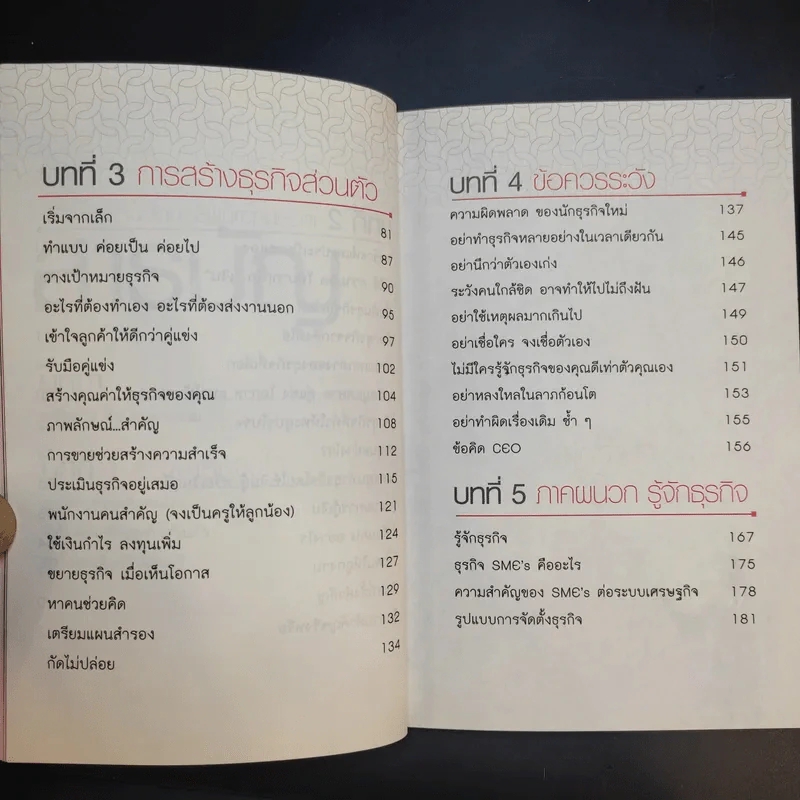 บทที่ 3 การสร้างธุรกิจส่วนตัว
เริ่มจากเล็ก 81
ทำแบบ ค่อยเป็น ค่อยไป 87
วางเป้าหมายธุรกิจ 90
อะไรที่ต้องทำเอง อะไรที่ต้องส่งงานนอก 95
เข้าใจลูกค้าให้ดีกว่าคู่แข่ง 97
รับมือคู่แข่ง 102
สร้างคุณค่าให้ธุรกิจของคุณ 104
ภาพลักษณ์...สำคัญ 108
การขายช่วยสร้างความสำเร็จ 112
ประเมินธุรกิจอยู่เสมอ 115
พนักงานคนสำคัญ (จงเป็นครูให้ลูกน้อง) 121
ใช้เงินกำไร ลงทุนเพิ่ม 124
ขยายธุรกิจ เมื่อเห็นโอกาส 127
หาคนช่วยคิด 129
เตรียมแผนสำรอง 132
กัดไม่ปล่อย 134
บทที่ 4 ข้อควรระวัง
ความผิดพลาด ของนักธุรกิจใหม่ 137
อย่าทำธุรกิจหลายอย่างในเวลาเดียวกัน 145
อย่านึกว่าตัวเองเก่ง 146
ระวังคนใกล้ชิด อาจทำให้ไปไม่ถึงฝัน 147
อย่าใช้เหตุผลมากเกินไป 149
อย่าเชื่อใคร จงเชื่อตัวเอง 150
ไม่มีใครรู้จักธุรกิจของคุณดีเท่าตัวคุณเอง 151
อย่าหลงใหลในลาภก้อนโต 153
อย่าทำผิดเรื่องเดิม ซ้ำ ๆ 155
ข้อคิด CEO 156
บทที่ 5 ภาคผนวก รู้จักธุรกิจ
รู้จักธุรกิจ 167
ธุรกิจ SME's คืออะไร 175
ความสำคัญของ SME's ต่อระบบเศรษฐกิจ 178
รูปแบบการจัดตั้งธุรกิจ 181